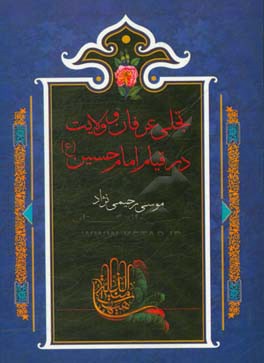 تجلی عرفان و ولایت
در قیام امام حسین (ع)
موسی رحیمی نژاد